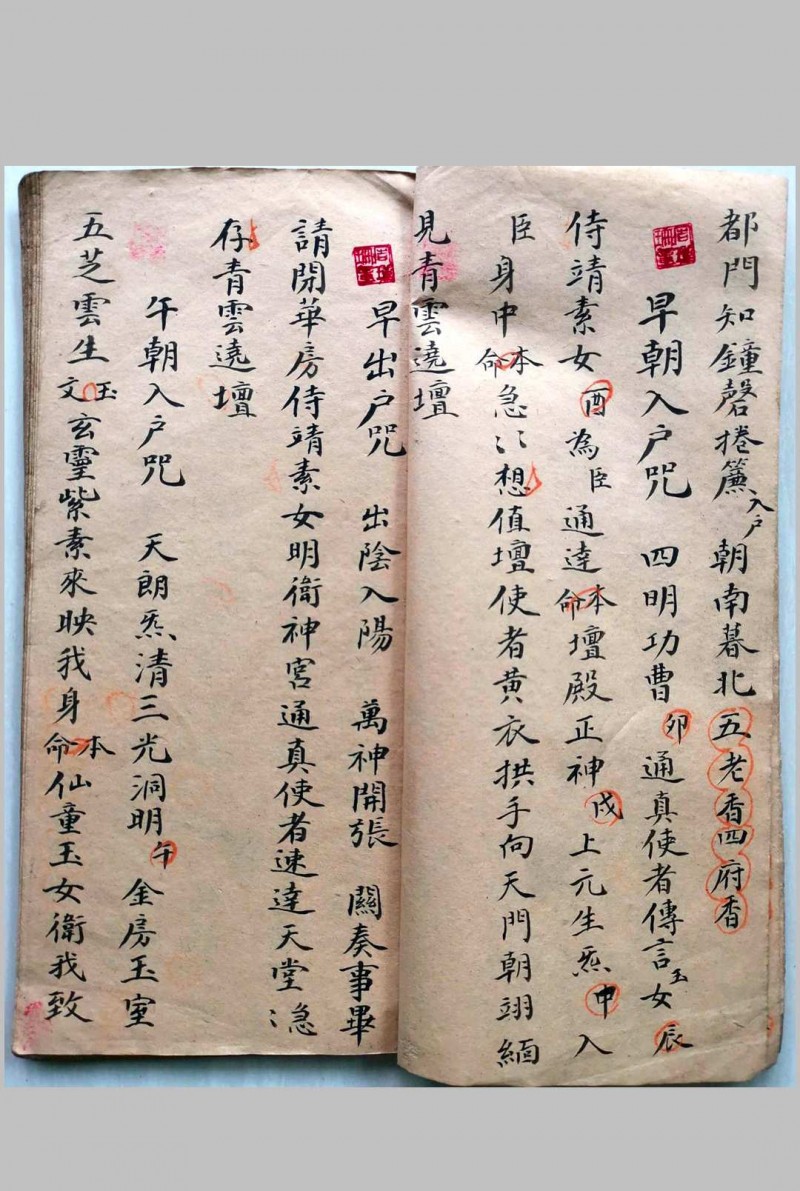 都門知鐘磬捲簾入户朝南暮北五老香四府香
早朝入户咒 四明功曹卯通真使者傳言玉女辰
侍靖素女酉為臣通達本命壇殿正神戌上元生炁申入
臣身中本命急〻想值壇使者黄衣拱手向天門朝翊緬
見青雲遶壇
早出户咒 出陰入陽 萬神開張 關奏事畢
請閉華房侍靖素女明衛神宮通真使者速達天堂急〻
存青雲遶壇
午朝入户咒 天朗炁清三光洞明午金房玉室
五芝雲生玉文玄靈紫素來映我身本命仙童玉女衛我致